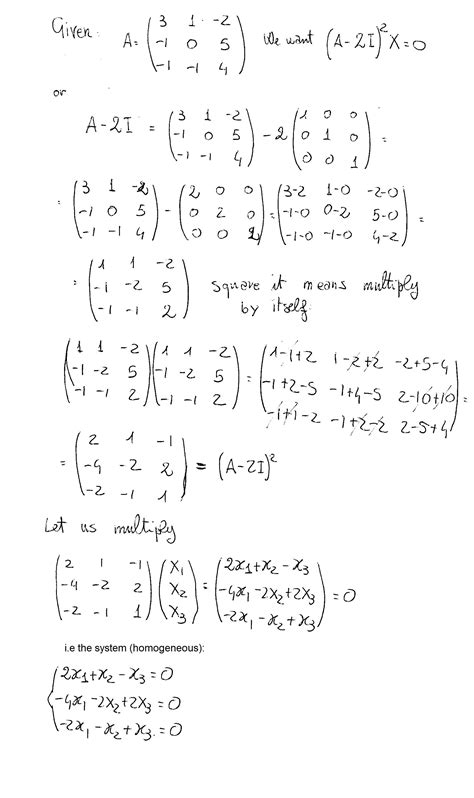 Given: A = (3 1 -2; -1 0 5; -1 -1 4) We want (A-2I)²X=0
or
A-2I = (3 1 -2; -1 0 5; -1 -1 4) - 2(1 0 0; 0 1 0; 0 0 1) =
= (3 1 -2; -1 0 5; -1 -1 4) - (2 0 0; 0 2 0; 0 0 2) = (3-2 1-0 -2-0; -1-0 0-2 5-0; -1-0 -1-0 4-2) =
= (1 1 -2; -1 -2 5; -1 -1 2) square it means multiply
by itself.
(1 1 -2; -1 -2 5; -1 -1 2)(1 1 -2; -1 -2 5; -1 -1 2) = (1-1+2 1-2+2 -2+5-4; -1+2-5 -1+4-5 2-10+10; -1+1-2 -1+2-2 2-5+4) =
= (2 1 -1; -4 -2 2; -2 -1 1) = (A-2I)²
Let us multiply
(2 1 -1; -4 -2 2; -2 -1 1)(x₁; x₂; x₃) = (2x₁+x₂-x₃; -4x₁-2x₂+2x₃; -2x₁-x₂+x₃) = 0
i.e the system (homogeneous):
2x₁+x₂-x₃=0
-4x₁-2x₂+2x₃=0
-2x₁-x₂+x₃=0